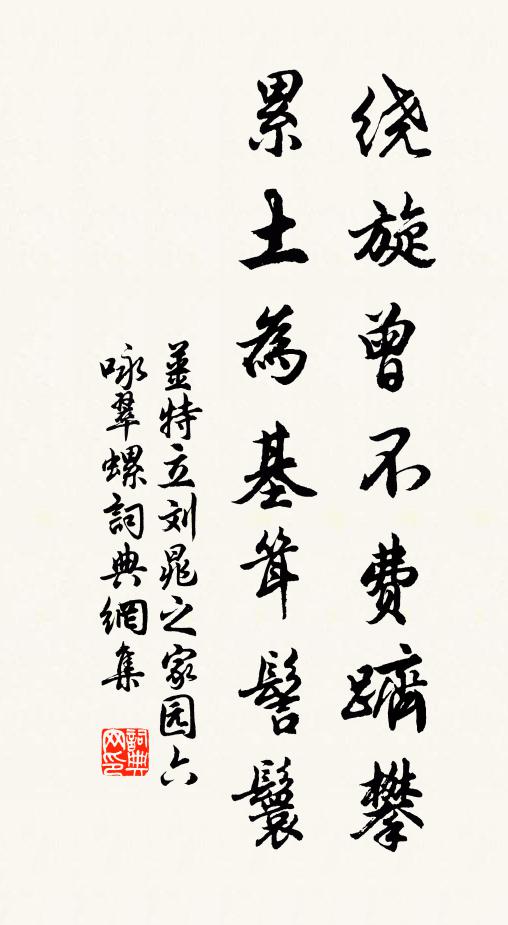 绕旋曾不费跻攀
累土為基耸髻鬟
姜特立刘晁之家园六
咏翠螺詞典網集
詞典网印